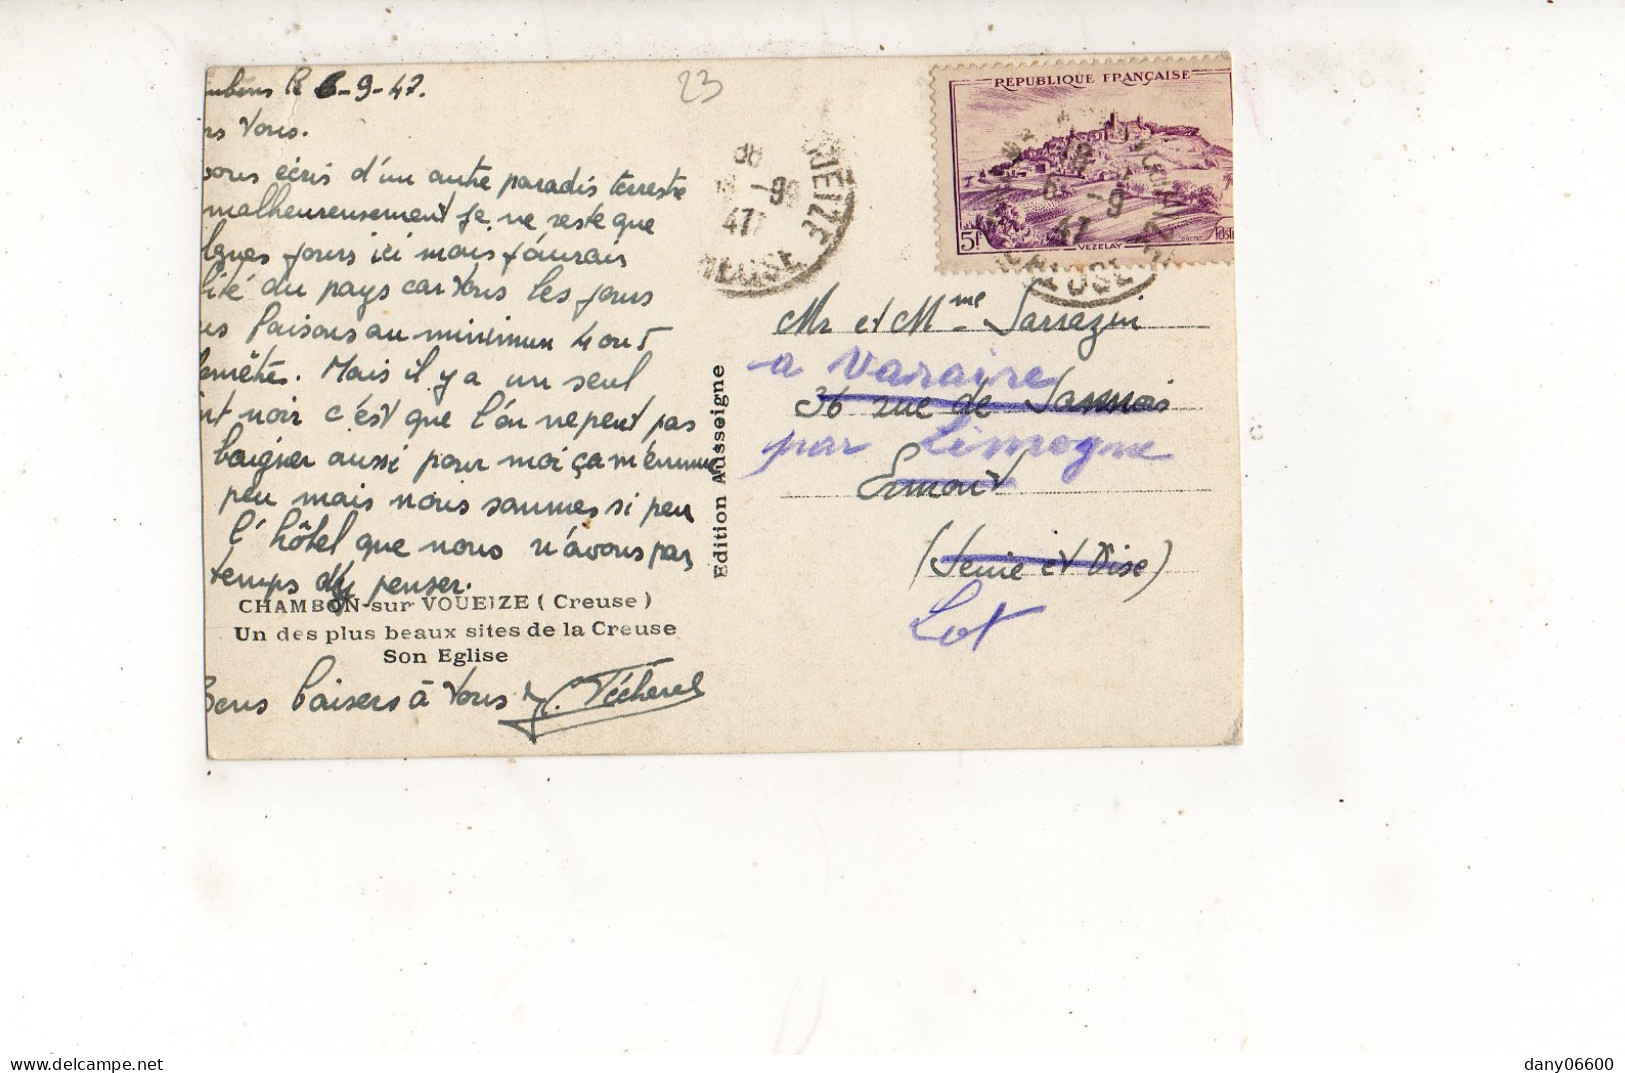 mbons le 6-9-47.
rs Vous.
vous écris d'un autre paradis terrestre
malheureusement je ne reste que
lques jours ici mais j'aurais
ité du pays car tous les jours
us faisons au minimum 4 ou 5
lomètres. Mais il y a un seul
int noir c'est que l'on ne peut pas
baigner aussi pour moi ça m'ennuie
peu mais nous sommes si peu
l'hôtel que nous n'avons pas
temps d'y penser.
CHAMBON-sur VOUEIZE ( Creuse )
Un des plus beaux sites de la Creuse
Son Eglise
Bons baisers à Vous
Edition Ausseigne
23
REPUBLIQUE FRANÇAISE
5f
VEZELAY
POSTES
6 -9
47
CREUSE
Mr et Mme Sarrazin
a Varaire
36 rue de Sannois
par Limogne
Ermont
(Seine et Oise)
Lot
delcampe.net
dany06600